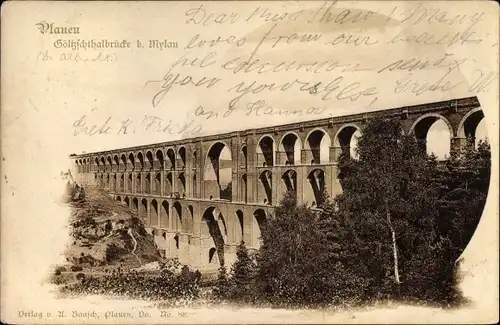 Plauen
Göltzschthalbrücke b. Mylau
Dear Miss Shaw! Many
loves from our
excursion sent
you yours Else, Grete W.
and Hanna
Grete K. Frieda
Verlag v. A. Baasch, Plauen, Vo. No. 88.